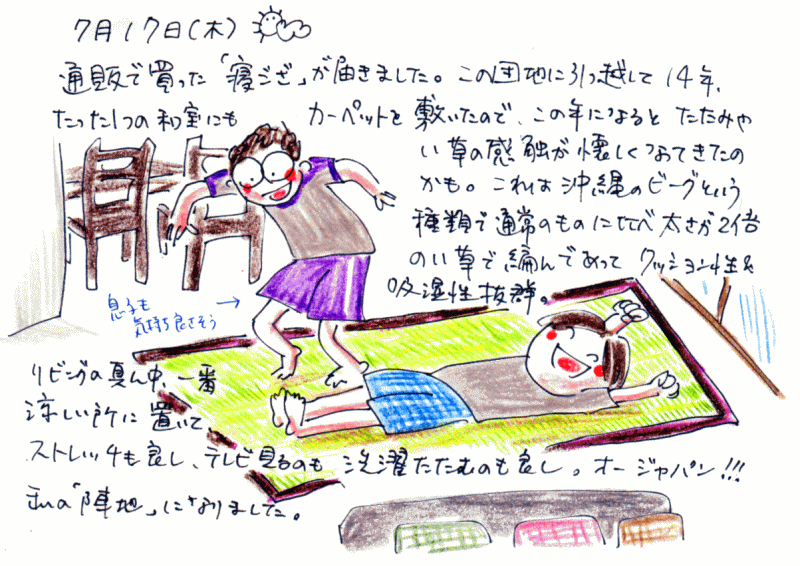 7月17日(木)
通販で買った「寝ござ」が届きました。この団地に引っ越して14年、
たった1つの和室にも カーペットを敷いたので、この年になると たたみや
い草の感触が懐しくなってきたの
かも。これは沖縄のビーグという
種類で通常のものに比べ太さが2倍
のい草で編んであって クッション性&
吸湿性抜群。
息子も
気持ち良さそう
リビングの真ん中、一番
涼しい所に置いて、
ストレッチも良し、テレビ見るのも 洗濯たたむのも良し。オージャパン!!!
私の「陣地」になりました。